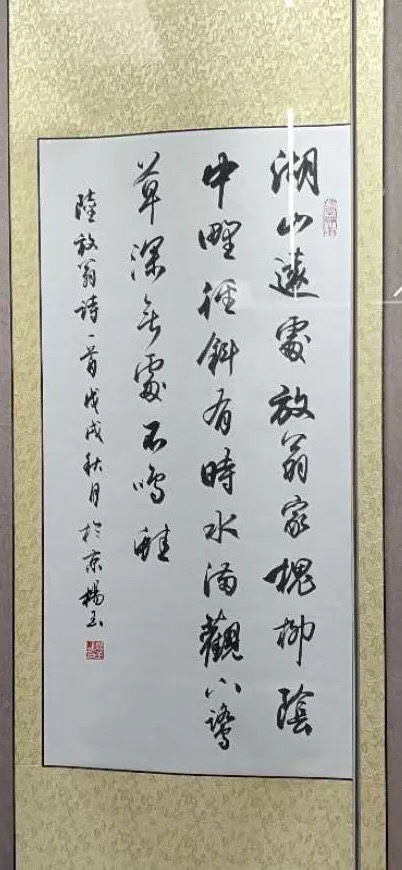 湖山遠處放翁家槐柳陰
中野徑斜有時水滿觀下鷺
草深无處不鳴蛙
陸放翁詩一首戊戌秋月於京楊玉